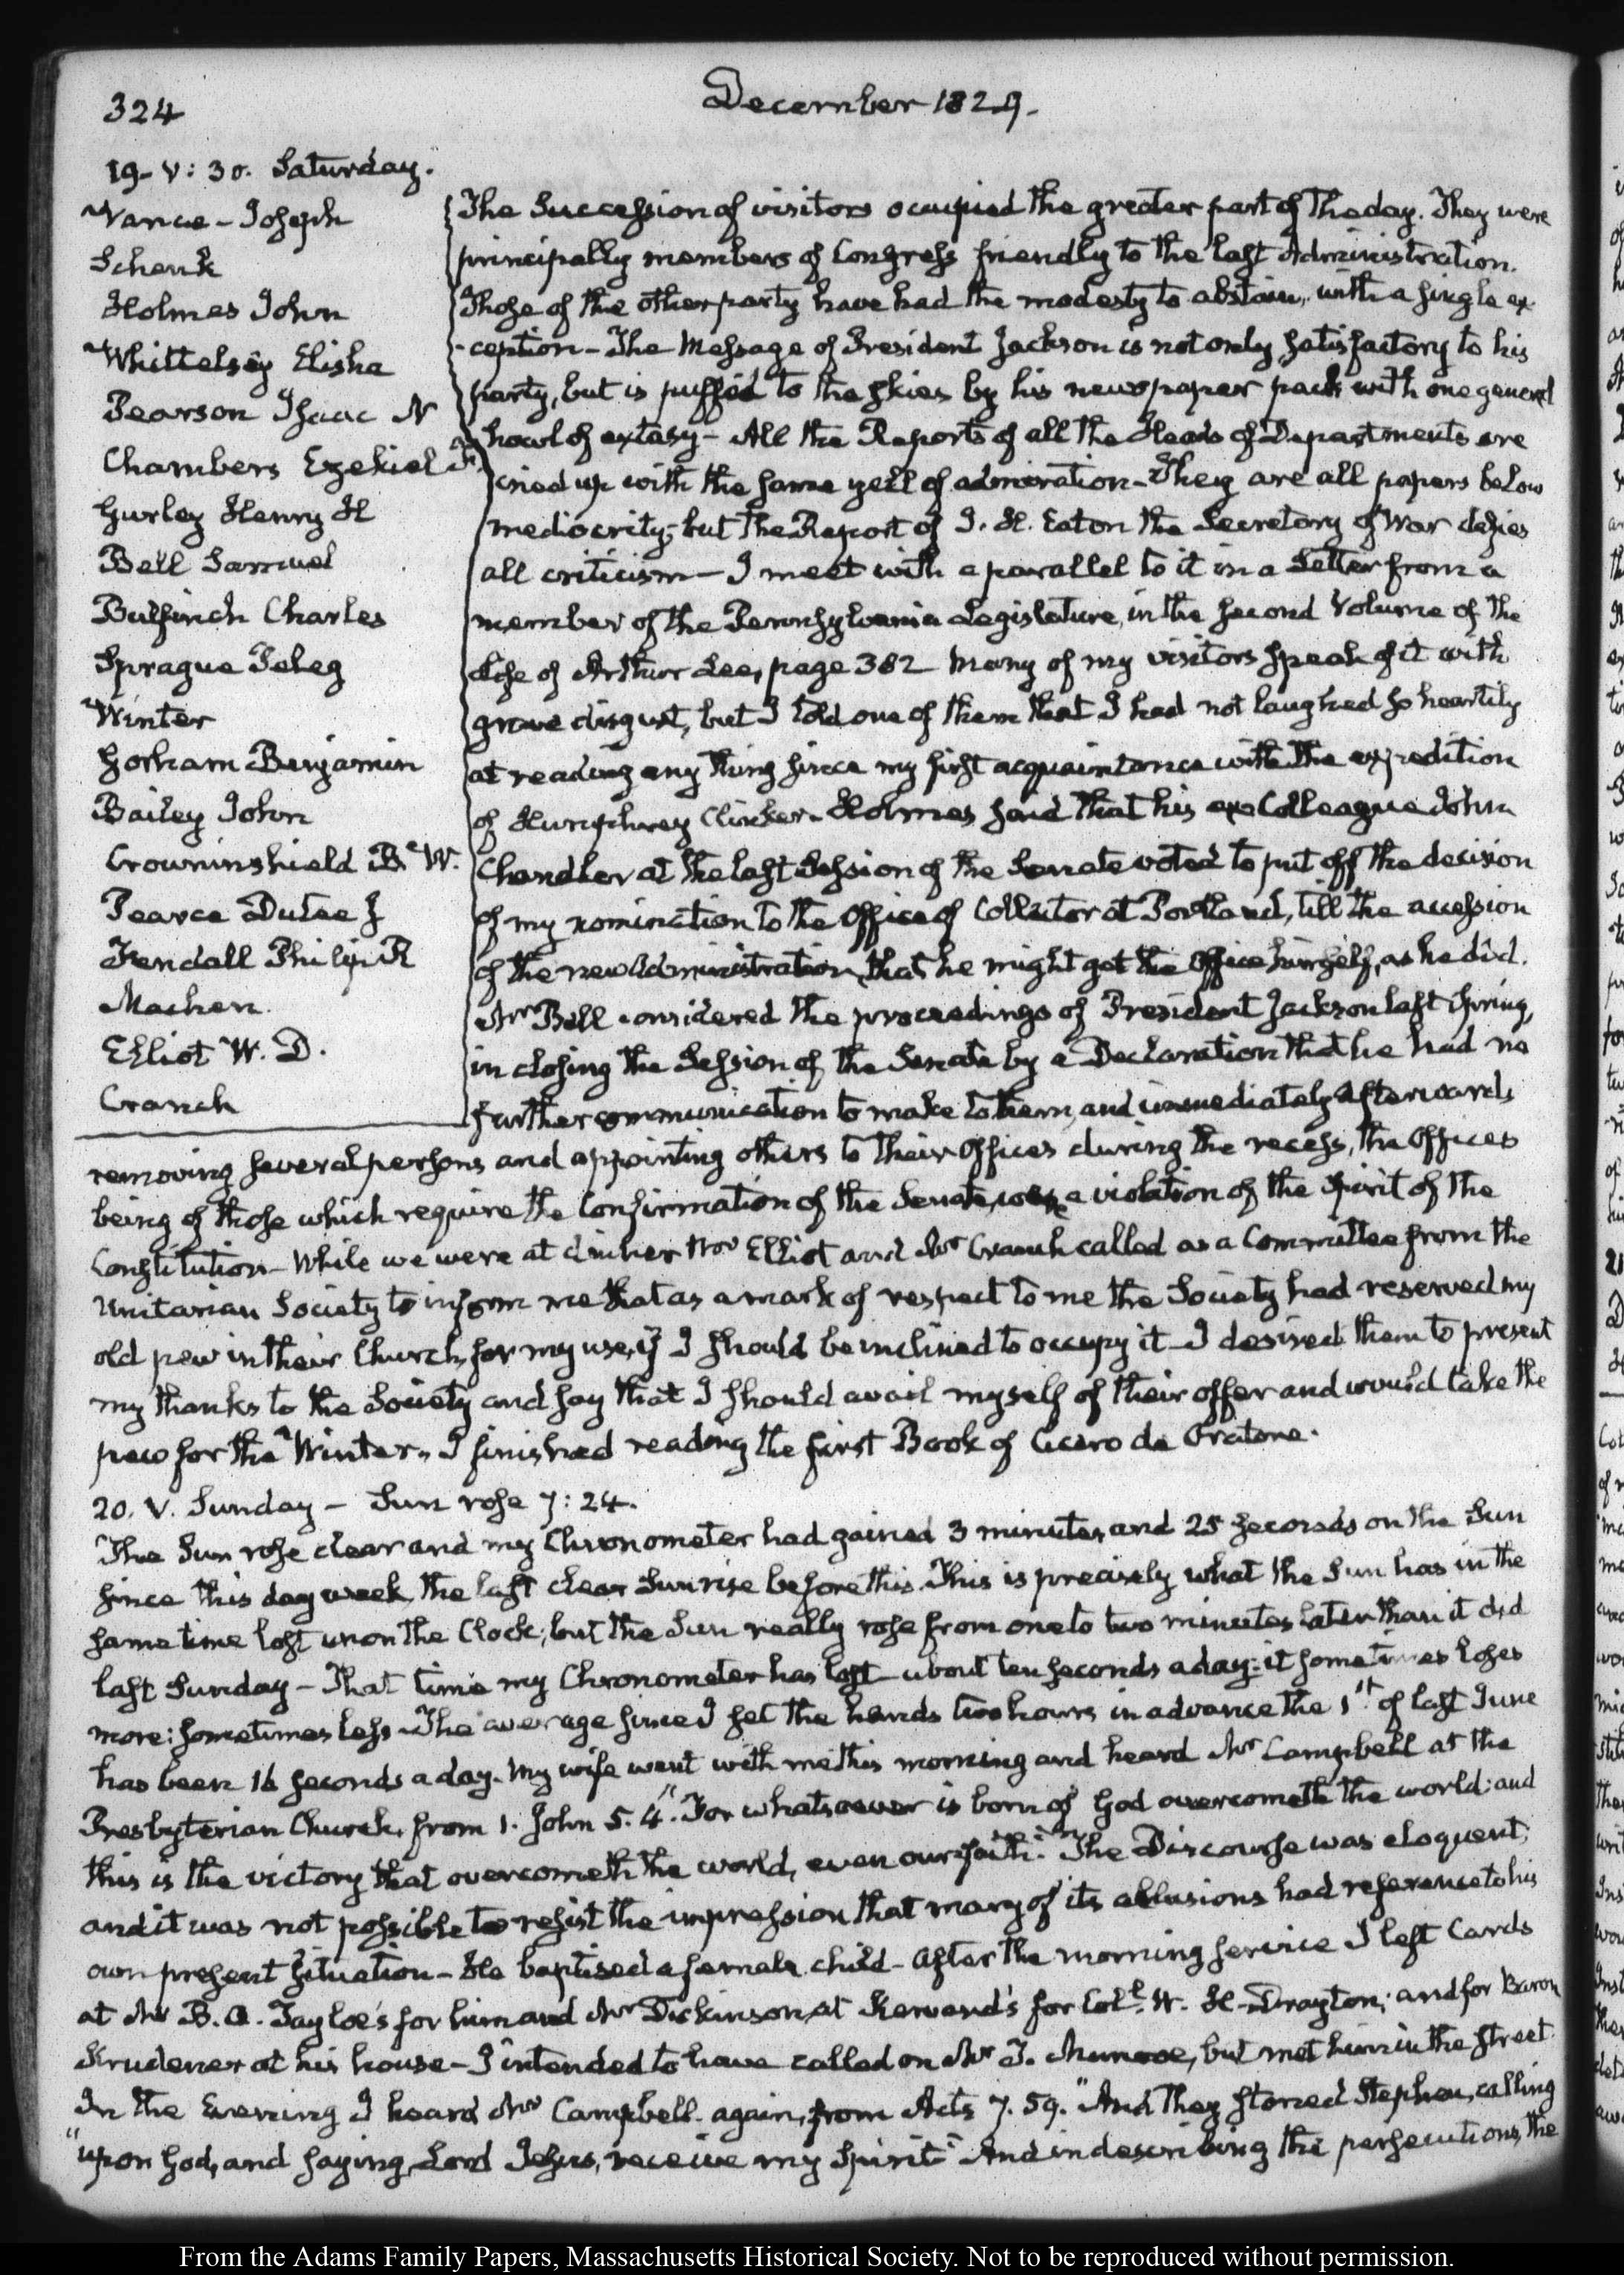 324
December 1829.
19. V: 30. Saturday.
Vance - Joseph
Schenk
Holmes John
Whittelsey Elisha
Pearson Isaac N
Chambers Ezekiel F.
Gurley Henry H
Bell Samuel
Bulfinch Charles
Sprague Peleg
Winter
Gorham Benjamin
Bailey John
Crowninshield B. W.
Pearce Dutee J
Fendall Philip R
Machen.
Elliot W. D.
Cranch
The Succession of visitors occupied the greater part of the day. They were
principally members of Congress friendly to the last Administration.
Those of the other party have had the modesty to abstain, with a single ex-
-ception - The Message of President Jackson is not only satisfactory to his
party, but is puffed to the skies by his newspaper pack with one general
howl of extasy - All the Reports of all the Heads of Departments are
cried up with the same yell of admiration - They are all papers below
mediocrity; but the Report of J. H. Eaton the Secretary of War defies
all criticism - I meet with a parallel to it in a Letter from a
member of the Pennsylvania Legislature, in the second Volume of the
Life of Arthur Lee, page 382 Many of my visitors speak of it with
grave disgust, but I told one of them that I had not laughed so heartily
at reading any thing since my first acquaintance with the expedition
of Humphrey Clinker. Holmes said that his ex Colleague John
Chandler at the last Session of the Senate voted to put off the decision
of my nomination to the Office of Collector at Portland, till the accession
of the new Administration, that he might get the Office himself, as he did.
Mr Bell considered the proceedings of President Jackson last Spring,
in closing the Session of the Senate by a Declaration that he had no
further communication to make to them, and immediately afterwards
removing several persons, and appointing others to their Offices during the recess, the Offices
being of those which require the Confirmation of the Senate, was a violation of the Spirit of the
Constitution - While we were at dinner Mr Elliot and Mr Cranch called as a Committee from the
Unitarian Society to inform me that as a mark of respect to me the Society had reserved my
old pew in their Church, for my use, if I should be inclined to occupy it - I desired them to present
my thanks to the Society and say that I should avail myself of their offer and would take the
pew for the Winter. I finished reading the first Book of Cicero de Oratore.
20. V. Sunday - Sun rose 7: 24.
The Sun rose clear and my Chronometer had gained 3 minutes and 25 seconds on the Sun
since this day week, the last clear Sunrise before this. This is precisely what the Sun has in the
same time lost upon the Clock; but the Sun really rose from one to two minutes later than it did
last Sunday - That time my Chronometer has lost about ten seconds a day: it sometimes loses
more: sometimes less. The average since I set the hands two hours in advance the 1st of last June
has been 16 seconds a day. My wife went with me this morning and heard Mr Campbell at the
Presbyterian Church, from 1. John 5. 4. "For whatsoever is born of God overcometh the world: and
this is the victory that overcometh the world, even our faith." The Discourse was eloquent;
and it was not possible to resist the impression that many of its allusions had reference to his
own present situation - He baptised a female child - After the morning service I left Cards
at Mr B. O. Tayloe's for him and Mr Dickinson, at Kervand's for Coll. W. H. Drayton; and for Baron
Krudener at his house - I intended to have called on Mr T. Munroe, but met him in the street.
In the Evening I heard Mr Campbell again, from Acts 7. 59. "And they stoned Stephen, calling
"upon God, and saying, Lord Jesus, receive my Spirit" And in describing the persecutions, the
From the Adams Family Papers, Massachusetts Historical Society. Not to be reproduced without permission.